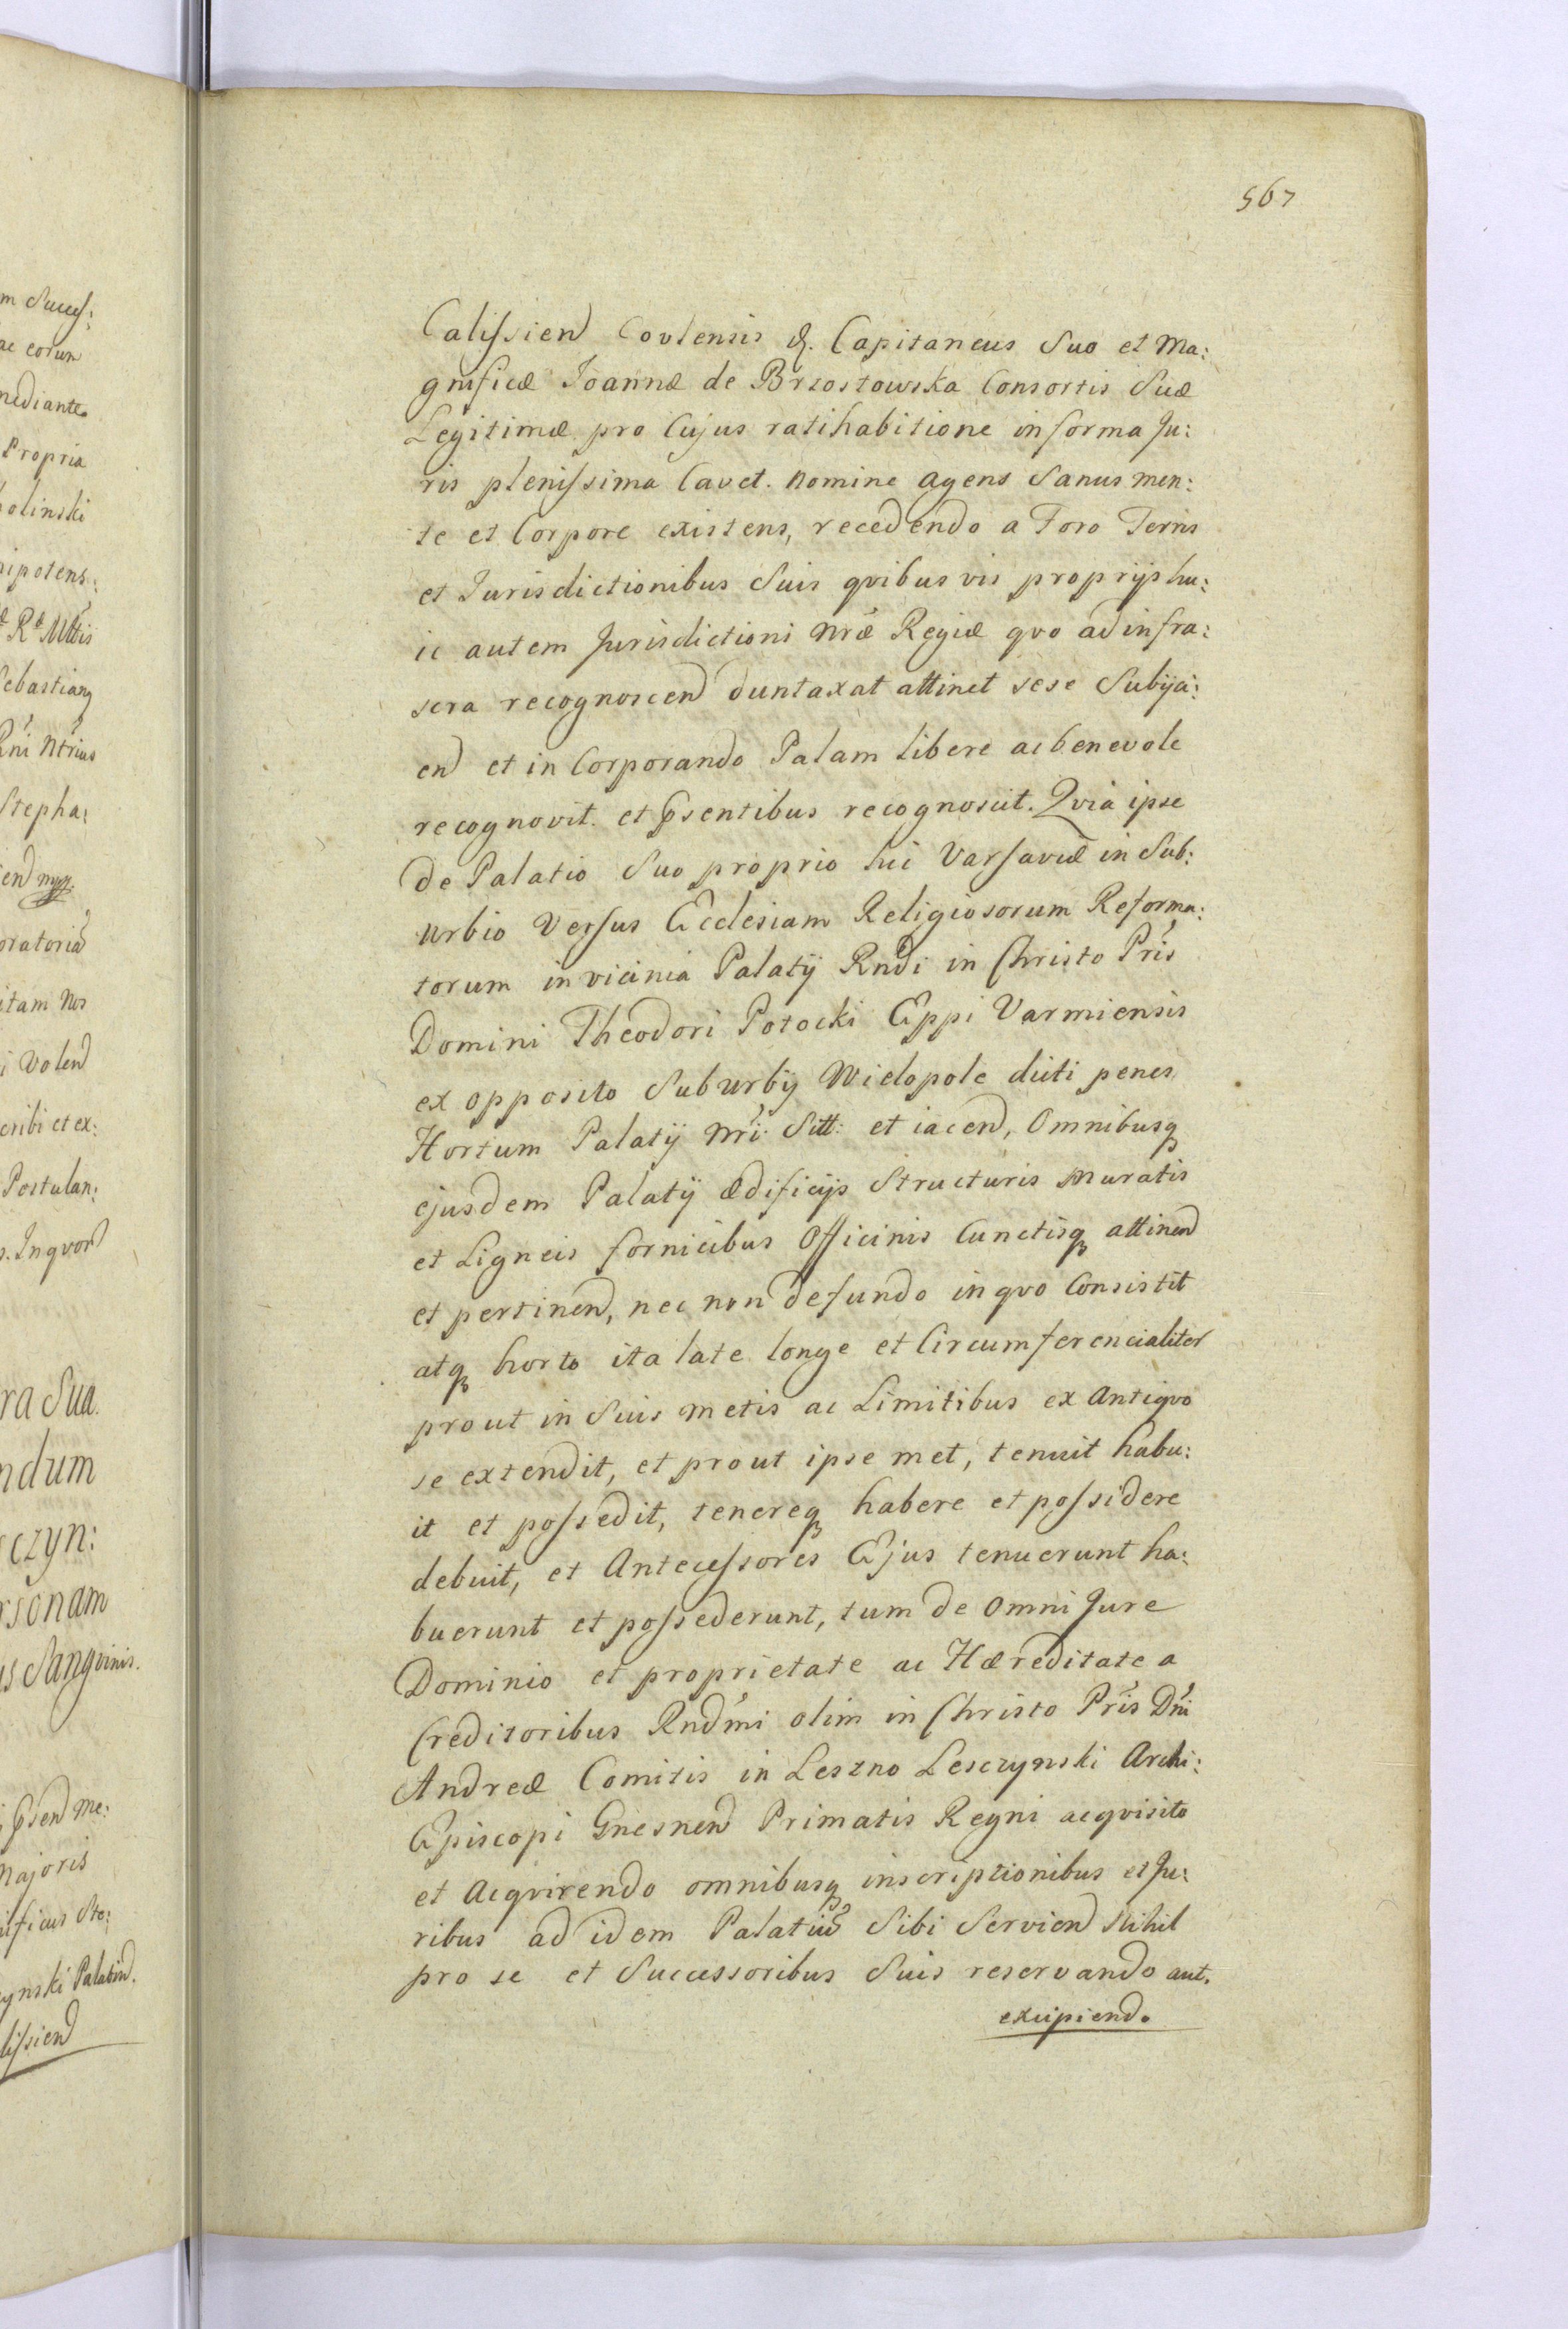 567
m Success:
ac eorun
mediante
Propria
olinski
nipotens:
Rᵉ Mttis
Sebastianq
Rni Ntrius
Stepha:
end mpp.
oratoria
itam Nos
i Volend
cribi et ex:
Postulan:
s. Inqvord
ra Sua.
ndum
czyn:
rsonam
us Sangvinis.
Psend me:
Majoris
ificus Ste:
zynski Palatin.
lissiend
Calissiend Covlensis &. Capitaneus Suo et Ma:
gnificæ Joannæ de Brzostowska Consortis Suæ
Legitimæ pro Cujus ratihabitione in forma Ju:
ris plenissima Cavet. Nomine agens Sanus men:
te et Corpore existens, recedendo a Foro Terris
et Jurisdictionibus Suis qvibus vis proprijs hu:
ic autem Jurisdictioni Nræ Regiæ qvo ad infra:
scra recognoscend duntaxat attinet sese Subija:
end et in Corporando Palam libere ac benevole
recognovit. et Psentibus recognoscit. Qvia ipse
de Palatio Suo proprio hic Varsaviæ in Sub:
urbio Versus Ecclesiam Religiosorum Reforma:
torum in vicinia Palatij Rndi in Christo Pris
Domini Theodori Potocki Eppi Varmiensis
ex opposito Suburbij Wielopole dicti penes
Hortum Palatij Nri. Sitt: et iacend, Omnibusq
ejusdem Palatij ædificijs Structuris Muratis
et Ligneis fornicibus Officinis Cunctisq attinend
et pertinend, nec non de fundo in qvo Consistit
atq horto ita late longe et Circumferencialiter
prout in Suis metis ac Limitibus ex Antiqvo
se extendit, et prout ipse met, tenuit habu:
it et possedit, tenereq habere et possidere
debuit, et Antecessores Ejus tenuerunt ha:
buerunt et possederunt, tum de Omni Jure
Dominio et proprietate ac Hæreditate a
Creditoribus Rndmi olim in Christo Pris Dni
Andreæ Comitis in Leszno Lesczynski Archi:
Episcopi Gnesnend Primatis Regni acqvisito
et Acqvirendo omnibusq inscriptionibus et Ju:
ribus ad idem Palatiu Sibi Serviend Nihil
pro se et Successoribus Suis reservando aut.
excipiend.